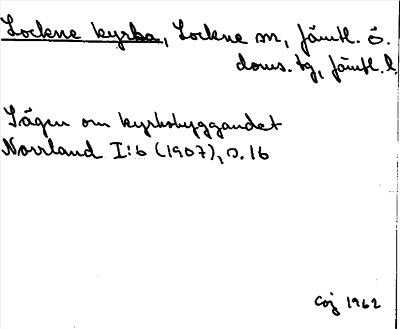 Lockne kyrka, Lockne sn, Jämtl. ö.
doms. tg, Jämtl. l.
Sägen om kyrkobyggandet
Norrland I:6 (1907), s. 16
COJ 1962